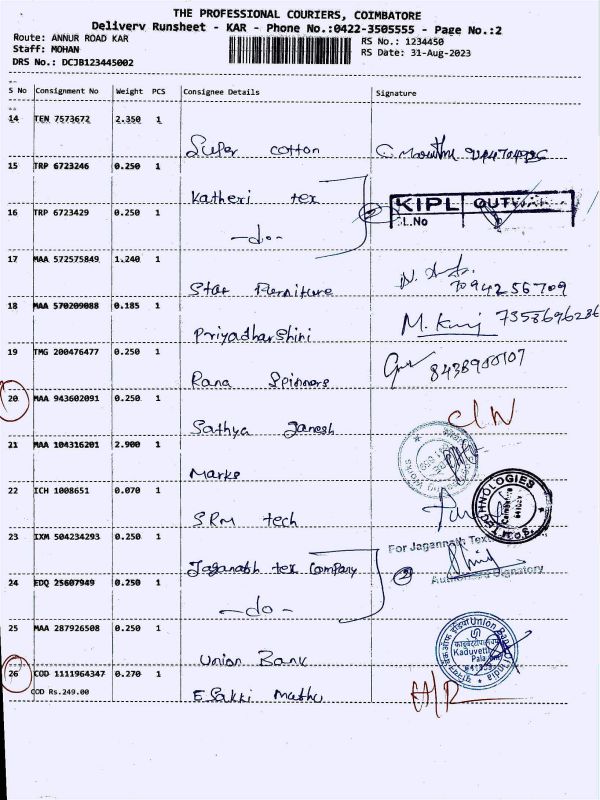 THE PROFESSIONAL COURIERS, COIMBATORE
Delivery Runsheet - KAR - Phone No.:0422-3505555 - Page No.:2
Route: ANNUR ROAD KAR
RS No.: 1234450
Staff: MOHAN
RS Date: 31-Aug-2023
DRS No.: DCJB123445002
S No Consignment No Weight PCS Consignee Details Signature
14 TEN 7573672 2.350 1
Super cotton
15 TRP 6723246 0.250 1
Katheri tex
KIPL OUTWA
SL.No
16 TRP 6723429 0.250 1
-do-
2
17 MAA 572575849 1.240 1
Star Furniture
7094256709
18 MAA 570209088 0.185 1
Priyadharshini
M. Kuj 7358696286
19 TMG 200476477 0.250 1
Rana Spinners
8438900107
20 MAA 943602091 0.250 1
Sathya Ganesh
C/N
21 MAA 104316201 2.900 1
Marks
22 ICH 1008651 0.070 1
SRM tech
TECHNOLOGIES
23 IXM 504234293 0.250 1
Jaganath tex Company
For Jagannath Tex
Authorised Signatory
24 EDQ 25607949 0.250 1
-do-
2
25 MAA 287926508 0.250 1
Union Bank
Union Bank of India
Kaduvetti
26 COD 1111964347 0.270 1
COD Rs.249.00
E.Sakki Muthu
H/R